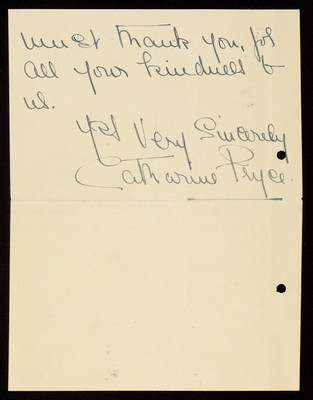 must thank you, for
all your kindness to
us.
Yrs Very Sincerely
Catharine Pryce.